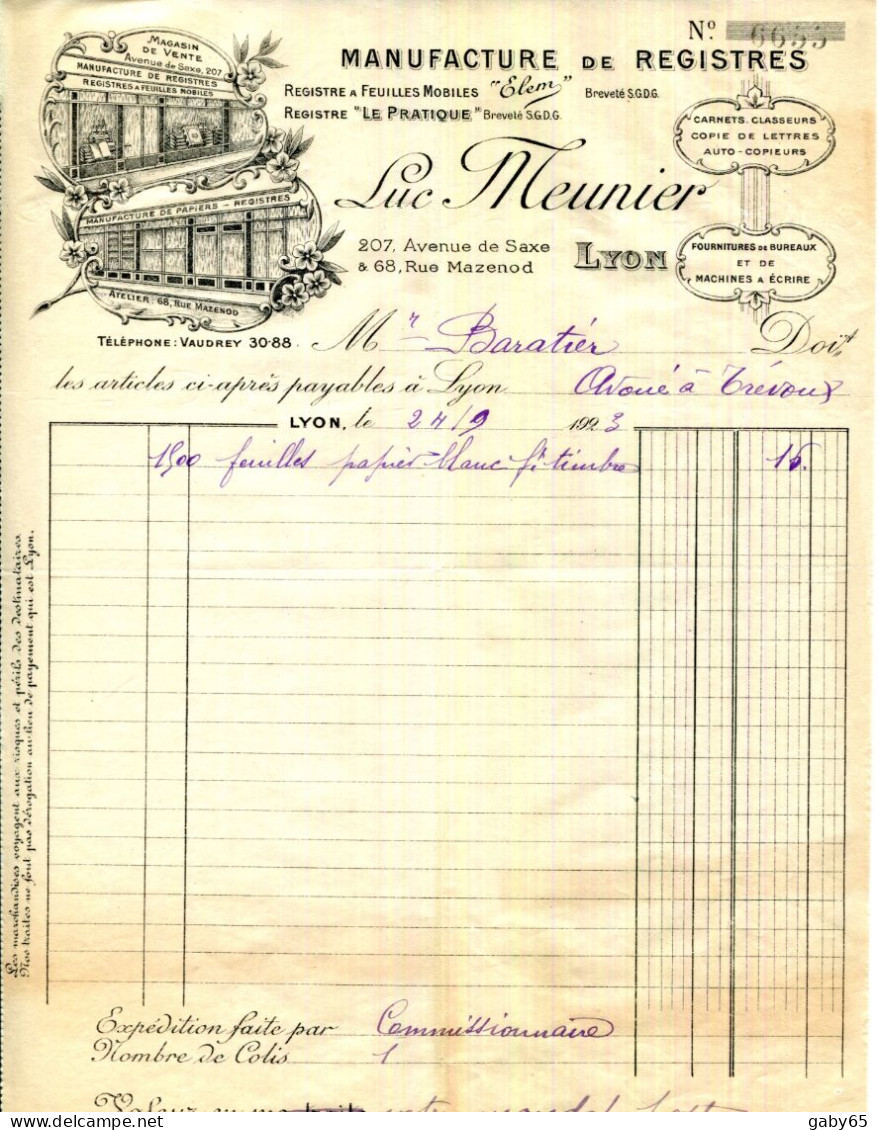 Nº 6653
MAGASIN
DE VENTE
Avenue de Saxe, 207
MANUFACTURE DE REGISTRES
REGISTRES A FEUILLES MOBILES
MANUFACTURE DE PAPIERS - REGISTRES
ATELIER: 68, RUE MAZENOD
MANUFACTURE DE REGISTRES
REGISTRE A FEUILLES MOBILES "Elem" Breveté S.G.D.G.
REGISTRE "LE PRATIQUE" Breveté S.G.D.G.
CARNETS. CLASSEURS
COPIE DE LETTRES
AUTO-COPIEURS
Luc Meunier
207, Avenue de Saxe
& 68, Rue Mazenod
LYON
FOURNITURES DE BUREAUX
ET DE
MACHINES A ÉCRIRE
TÉLÉPHONE: VAUDREY 30-88
Mr Baratier Doit
les articles ci-après payables à Lyon Avoué à Trévoux
LYON, le 24/9 1923
1500 feuilles papier blanc ft timbre 16.
Les marchandises voyagent aux risques et périls des destinataires.
Nos traites ne font pas dérogation au lieu de payement qui est Lyon.
Expédition faite par Commissionnaire
Nombre de Colis 1
Valeur en ma traite votre mandat
gaby65